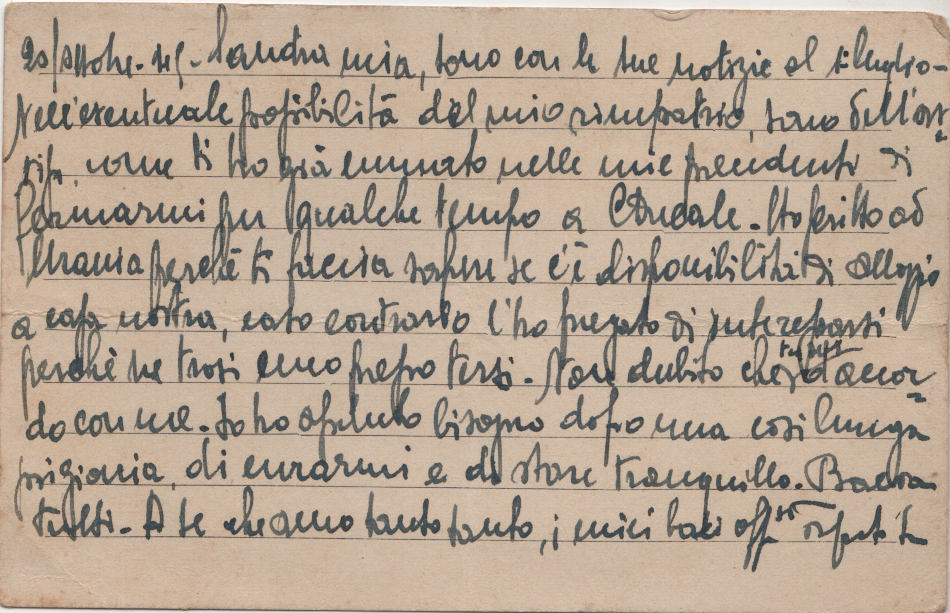 20/settobre. 45 - Sandra mia, sono con le tue notizie al 5 luglio -
Nell'eventuale possibilità del mio rimpatrio, sono dell'av-
viso, come ti ho già scritto nelle mie precedenti di
fermarmi per qualche tempo a . Ho scritto ad
Urania perchè ti faccia sapere se c'è disponibilità di alloggio
a casa nostra, caso contrario l'ho pregato di interessarsi
perchè ne trovi uno presso terzi. Non dubito che tu sia d'accor-
do con me. Io ho assoluto bisogno dopo una così lunga
prigionia, di curarmi e di stare tranquillo. Bacia
tutti. A te che amo tanto tanto, i miei baci aff.si